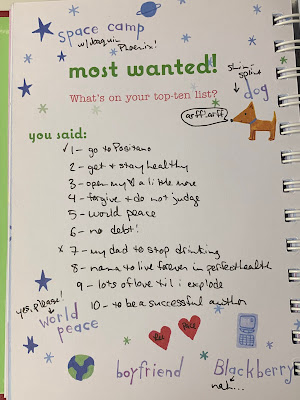 space camp
w/ Joaquin
Phoenix!
most wanted!
What's on your top-ten list?
shin-
splint
dog
arff! arff!
you said:
✓ 1- go to Positano
2- get & stay healthy
3- open my ♡ a little more
4- forgive & do not judge
5- world peace
6- no debt!
x 7- my dad to stop drinking
8- nana to live forever in perfect health
9- lots of love 'til i explode
10- to be a successful author
yes, please!
world
peace
boyfriend
Blackberry
nah...